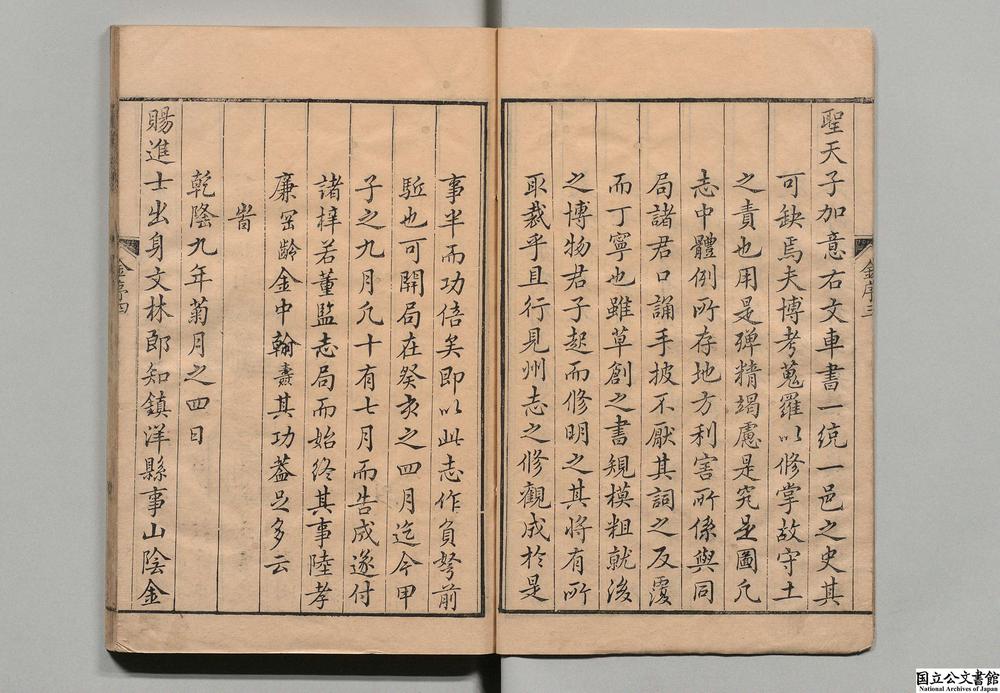 聖天子加意右文車書一統一邑之史其
可缺焉夫博考蒐羅以修掌故守土
之責也用是殫精竭慮是究是圖凡
志中體例所存地方利害所係與同
局諸君口誦手披不厭其詞之反覆
而丁寧也雖草創之書規模粗就後
之博物君子起而修明之其將有所
取裁乎且行見州志之修觀成於是
金序三
事半而功倍矣即以此志作負弩前
駈也可開局在癸亥之四月迄今甲
子之九月凡十有七月而告成遂付
諸梓若董監志局而始終其事陸孝
廉罕齡金中翰燾其功蓋足多云
旹
乾隆九年菊月之四日
賜進士出身文林郎知鎮洋縣事山陰金
金序四
国立公文書館
National Archives of Japan